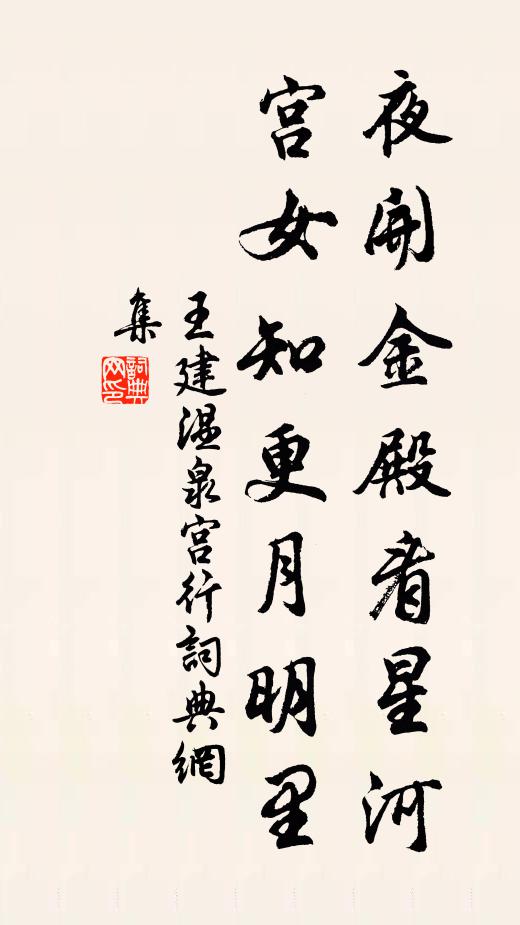 夜開金殿看星河
宫女知更月明里
王建温泉宫行詞典網
集
詞典
网印